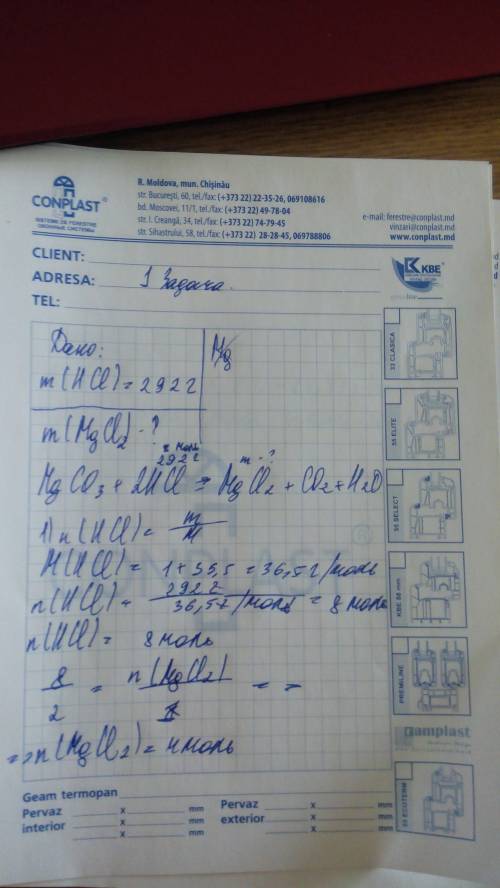 CONPLAST®
SISTEME DE FERESTRE
ОКОННЫЕ СИСТЕМЫ
R. Moldova, mun. Chişinău
str. Bucureşti, 60, tel./fax: (+373 22) 22-35-26, 069108616
bd. Moscovei, 11/1, tel./fax: (+373 22) 49-78-04
str. I. Creangă, 34, tel./fax: (+373 22) 74-79-45
str. Sihastrului, 58, tel./fax: (+373 22) 28-28-45, 069788806
e-mail: ferestre@conplast.md
vinzari@conplast.md
www.conplast.md
CLIENT:
ADRESA: 1 Задача.
TEL:
KBE
Дано:
Mg
m(HCl) = 292 г
m(MgCl2) - ?
8 моль
292 г
m - ?
MgCO3 + 2HCl = MgCl2 + CO2 + H2O
1) n(HCl) = m/M
M(HCl) = 1 + 35,5 = 36,5 г/моль
n(HCl) = 292 г / 36,5 г/моль = 8 моль
n(HCl) = 8 моль
8/2 = n(MgCl2)/1 = =
=> n(MgCl2) = 4 моль
33 CLASICA
55 ELITE
55 SELECT
KBE 88 mm
PREMILINE
55 ECOTERM
Geam termopan
Pervaz x mm
interior x mm
x mm
Pervaz x mm
exterior x mm
x mm